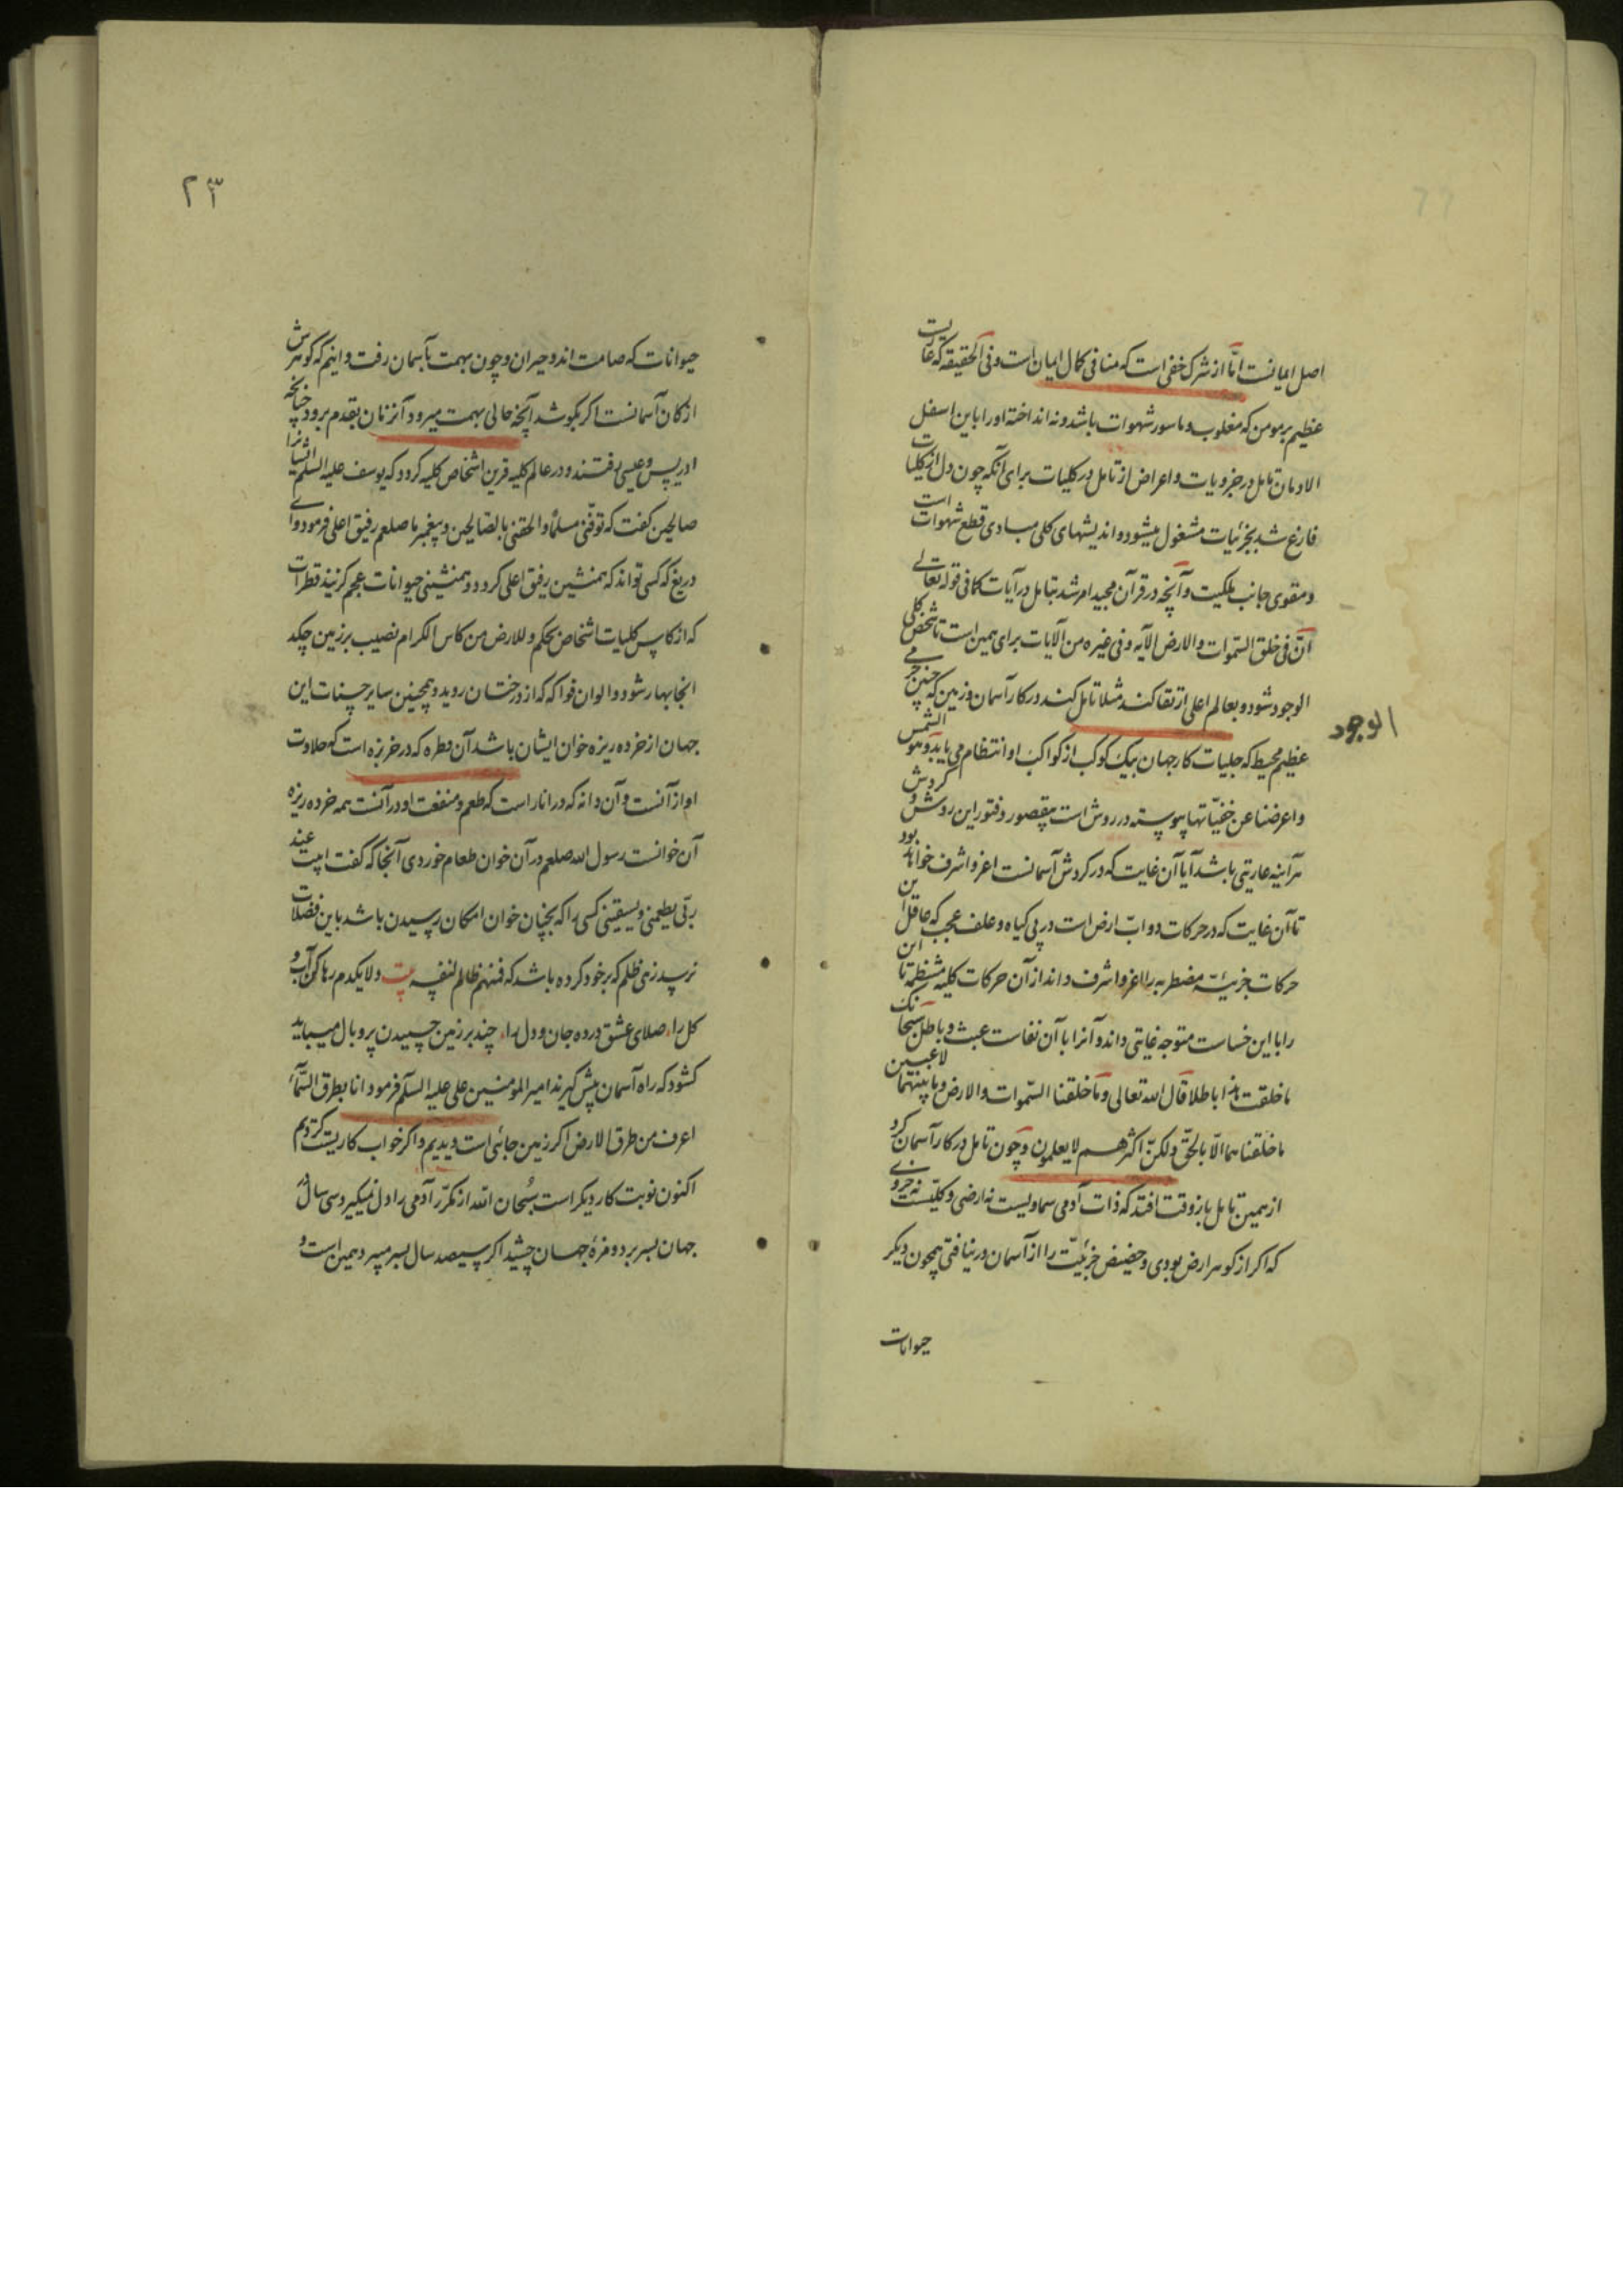 اصل ایمانست اما از شرک خفی است که منافی کمال ایمان است و فی الحقیقه که عاریت
عظیم بر مومن که مغلوب و ماسور شهوات باشد و نه انداخته او را باین اسفل
الا ومان تامل در جزویات و اعراض از تامل در کلیات برای آنکه چون دل از کلیات
فارغ شد بجزئیات مشغول میشود و اندیشهای کلی مبادی قطع شهوات است
و مقوی جانب ملکیت و آنچه در قرآن مجید امر شد بتامل در آیات کما فی قوله تعالی
ان فی خلق السموات والارض الآیه و فی غیره من الآیات برای همین است تا شخص کلی
الوجود شود و بعالم اعلی ارتقا کند مثلا تامل کند در کار آسمان و زمین که چنین جرمی
الوجود
عظیم محیط که جلیات کار جهان بیک کوکب از کواکب او انتظام می یابد و هو الشمس
و اعرضنا عن خفیاتها پیوسته در روش است بیقصور و فتور این روش و کردش
هرآینه عاریتی باشد آیا آن غایت که در کردش آسمانست اعز و اشرف خواهد بود
تا آن غایت که در حرکات دواب ارض است در پی کیاه و علف عجب که عاقل این
حرکات جزئیه مضطربه را اعز و اشرف داند از آن حرکات کلیه منتظمه تا این
را با این خساست متوجه غایتی داند و آنرا با آن نفاست عبث و باطل سبحانک
ما خلقت هذا باطلا قال الله تعالی و ما خلقنا السموات والارض و ما بینهما لاعبین
ما خلقناهما الا بالحق ولکن اکثرهم لا یعلمون و چون تامل در کار آسمان کرد
از همین تامل باز وقت افتد که ذات آدمی سماویست نه ارضی و کلیست نه جزوی
که اکر از کوهر ارض بودی و حضیض جزئیت را از آسمان در نیافتی همچون دیکر
حیوانات
۲۳
حیوانات که صامت اند و حیران و چون بهمت بآسمان رفت و اینم که کوهرش
از کان آسمانست اکر بکوشد آنچه حالی بهمت میرود آنزمان بقدم برود چنانچه
ادریس و عیسی رفتند و در عالم کلیه قرین اشخاص کلیه کردد که یوسف علیه السلم ایشانرا
صالحین کفت که توفنی مسلما والحقنی بالصالحین و پیغمبر ما صلعم رفیق اعلی فرمود وای
دریغ که کسی تواند که همنشین رفیق اعلی کردد و همنشینی حیوانات عجم کزیند قطرات
که از کاس کلیات اشخاص بحکم وللارض من کاس الکرام نصیب بر زمین چکد
آنجا بهار شود و الوان فواکه که از درختان روید و همچنین سایر حسنات این
جهان از خرده ریزه خوان ایشان باشد آن قطره که در خربزه است که حلاوت
او از آنست و آن دانه که در انار است که طعم و منفعت او در آنست همه خرده ریزه
آن خوانست رسول الله صلعم در آن خوان طعام خوردی آنجا که کفت ابیت عند
ربی یطعمنی و یسقینی کسی را که بچنان خوان امکان رسیدن باشد باین فضلات
نرسد زهی ظلم که بر خود کرده باشد که فمنهم ظالم لنفسه بیت دلا یکدم رها کن آب و
کل را صلای عشق در ده جان و دل را چند بر زمین چسپیدن پر و بال میباید
کشود که راه آسمان پیش کیرند امیر المومنین علی علیه السلم فرمود انا بطرق السماء
اعرف من طرق الارض اکر زمین جائی است دیدیم و اکر خواب کاریست کردیم
اکنون نوبت کار دیکر است سبحان الله از مکرر آدمی را دل نمیکیرد سی سال
جهان بسر برد و مزهٔ جهان چشید اکر سیصد سال بسر میبرد همین است و